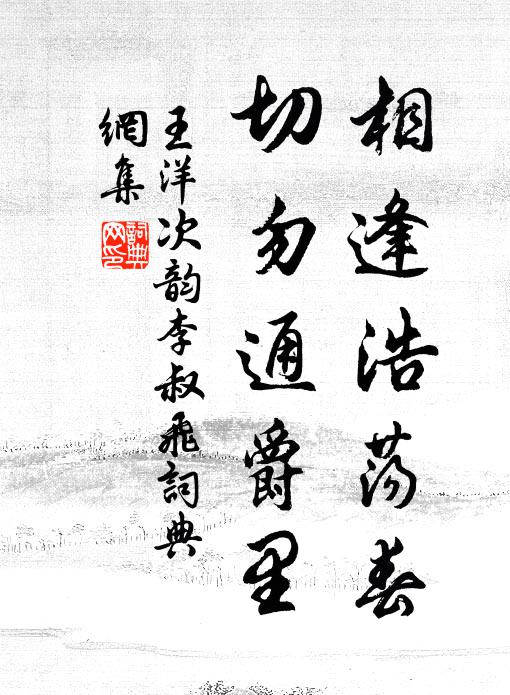 相逢浩荡春
切勿通爵里
王洋次韵李叔飛詞典
網集
詞典
网印